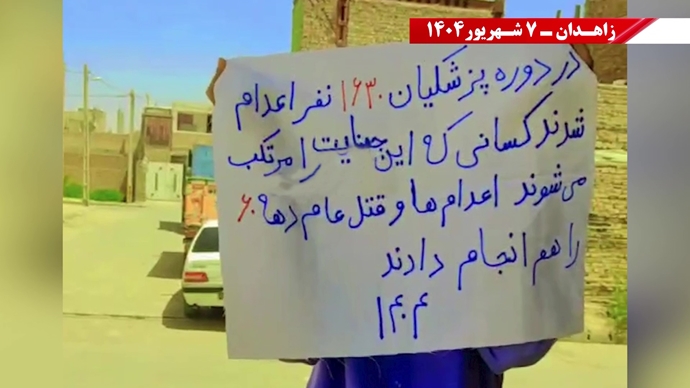 زاهدان ـ ۷ شهریور ۱۴۰۴
در دوره پزشکیان ۱۶۳۰ نفر اعدام
شدند کسانی که این جنایت را مرتکب
می‌شوند اعدام ها و قتل عام دهه ۶۰
را هم انجام دادند